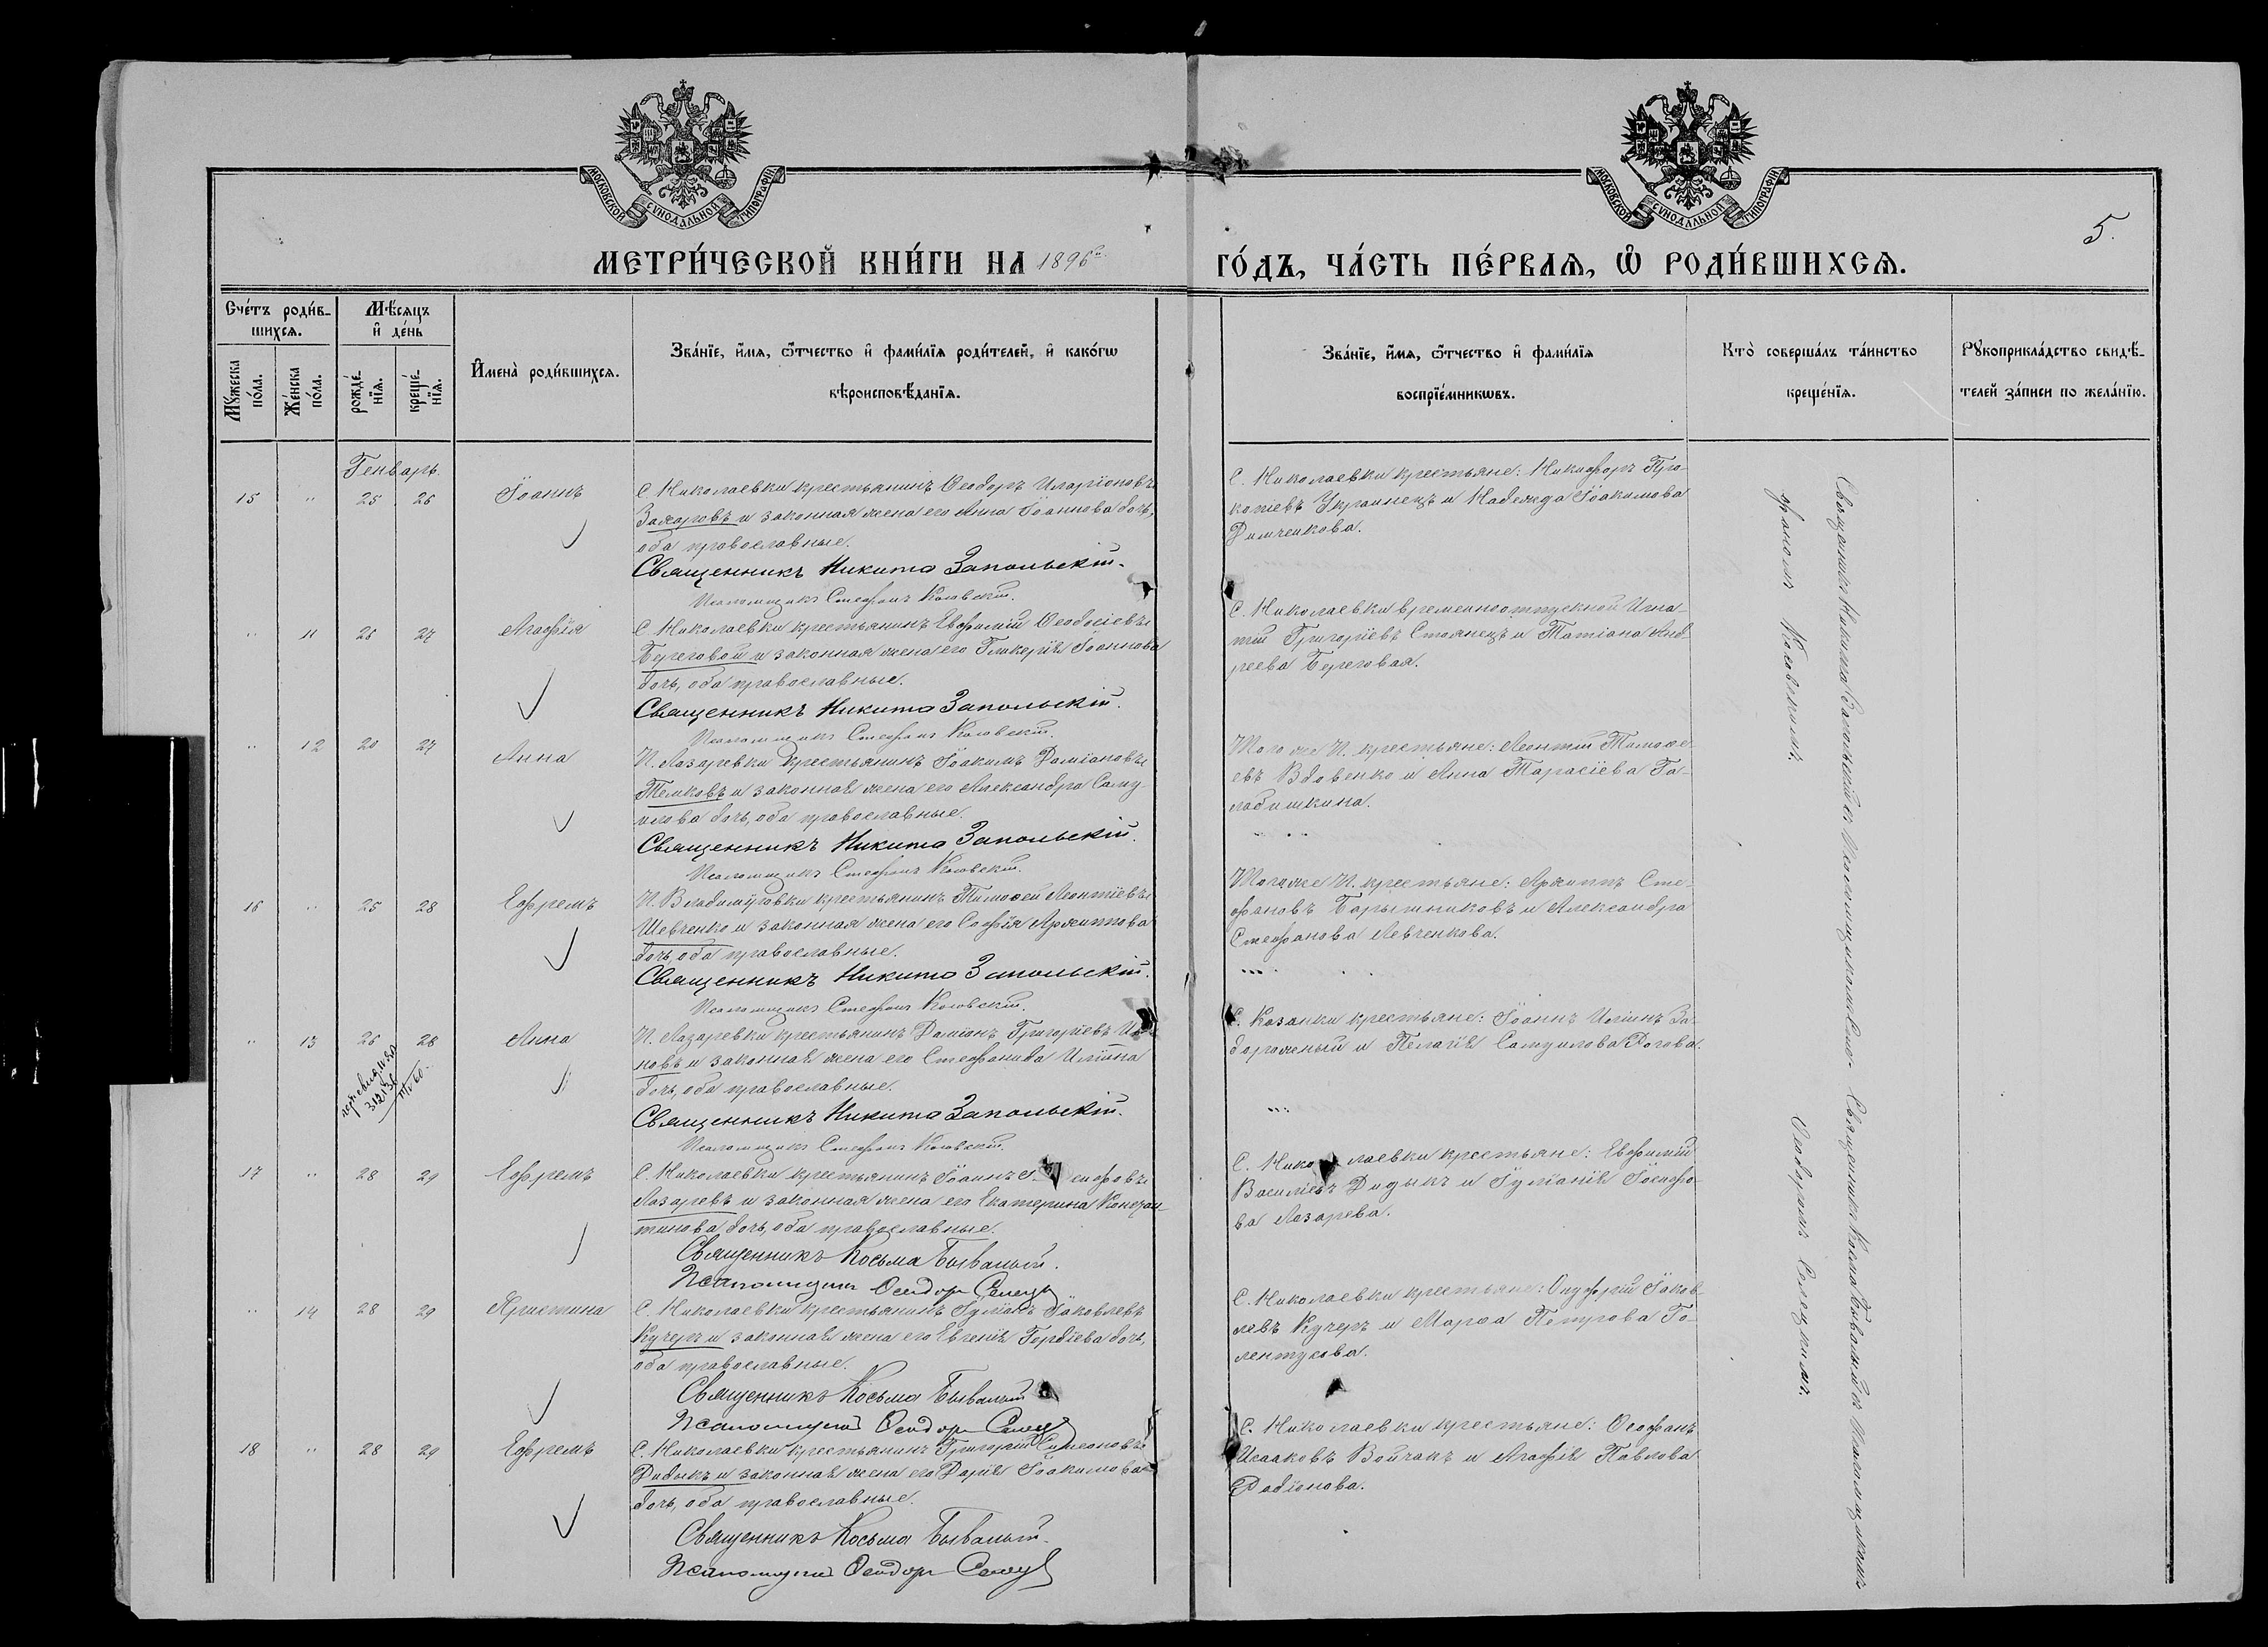 МОСКОВСКОЙ СѴНОДАЛЬНОЙ ТИПОГРАФІИ
МОСКОВСКОЙ СѴНОДАЛЬНОЙ ТИПОГРАФІИ
5.
МЕТРИ́ЧЕСКОЙ КНИ́ГИ НА 1896й
ГО́ДЪ, ЧА́СТЬ ПЕ́РВАѦ, Ѡ҆ РОДИ́ВШИХСѦ.
Сче́тъ роди́в-
шихсѧ.
Мꙋ́жеска
по́ла.
Же́нска
по́ла.
Мѣ́сѧцъ
и҆ де́нь
рожде́-
нїѧ.
креще́-
нїѧ.
И҆мена̀ роди́вшихсѧ.
Зва́нїе, и҆́мѧ, ѻ҆́тчество и҆ фами́лїѧ роди́телей, и҆ како́гѡ
вѣроисповѣ́данїѧ.
Зва́нїе, и҆́мѧ, ѻ҆́тчество и҆ фами́лїѧ
воспрїе́мникѡвъ.
Кто̀ соверша́лъ та́инство
креще́нїѧ.
Рꙋкоприкла́дство свидѣ́-
телей за́писи по жела́нїю.
Генварь.
15 " 25 26 Іоаннъ
С. Николаевки крестьянинъ Ѳеодоръ Иларіоновъ
и законная жена его Анна Іоаннова дочь,
оба православные.
Священникъ Никита Запольскій.
Псаломщикъ Стефанъ Коловскій.
С. Николаевки крестьяне: Никифоръ Про-
копіевъ Украинецъ и Надежда Іоакимова
Димченкова.
" 11 26 27 Агафія
С. Николаевки крестьянинъ Евфимій Ѳеодосіевъ
Береговой и законная жена его Гликерія Іоаннова
дочь, оба православные.
Священникъ Никита Запольскій.
Псаломщикъ Стефанъ Коловскій.
С. Николаевки временноотпускной Игна-
тій Григоріевъ Стоянецъ и Татіана Анд-
реева Береговая.
" 12 20 27 Анна
П. Лазаревки крестьянинъ Іоакимъ Даміановъ
Темковъ и законная жена его Александра Саму-
илова дочь, оба православные.
Священникъ Никита Запольскій.
Псаломщикъ Стефанъ Коловскій.
Того же П. крестьяне: Леонтій Тимоѳе-
евъ Вдовенко и Анна Тарасіева Га-
лабишкина.
16 " 25 28 Ефремъ
П. Владиміровки крестьянинъ Тимоѳей Леонтіевъ
Шевченко и законная жена его Софія Архиппова
дочь, оба православные.
Священникъ Никита Запольскій.
Псаломщикъ Стефанъ Коловскій.
Того же П. крестьяне: Архиппъ Сте-
фановъ Барышниковъ и Александра
Стефанова Левченкова.
" 13 26 28 Анна
312136
П. Лазаревки крестьянинъ Даміанъ Григоріевъ
новъ и законная жена его Стефанида Иліина
дочь, оба православные.
Священникъ Никита Запольскій.
Псаломщикъ Стефанъ Коловскій.
С. Казанки крестьяне: Іоаннъ Иліинъ За-
дорожный и Пелагія Самуилова Рогова.
17 " 28 29 Ефремъ
С. Николаевки крестьянинъ Іоаннъ сифовъ
Лазаревъ и законная жена его Екатерина Констан-
тинова дочь, оба православные.
Священникъ Косьма Бывалый.
Псаломщикъ Ѳеодоръ Селец
С. Николаевки крестьяне: Евфимій
Василіевъ Дидыкъ и Іуліанія Іосифо-
ва Лазарева.
" 14 28 29 Христина
С. Николаевки крестьянинъ Іуліанъ Іаковлевъ
Кучеръ и законная жена его Евгенія Гордіева дочь,
оба православные.
Священникъ Косьма Бывалый
Псаломщикъ Ѳеодоръ Селец
С. Николаевки крестьяне: Онуфрій Іаков-
левъ Кучеръ и Марѳа Петрова Го-
лентукова.
18 " 28 29 Ефремъ
С. Николаевки крестьянинъ Григорій Симеоновъ
Дидыкъ и законная жена его Дарія Іоакимова
дочь, оба православные.
Священникъ Косьма Бывалый.
Псаломщикъ Ѳеодоръ Селец
С. Николаевки крестьяне: Ѳеофанъ
Исааковъ Войчакъ и Агафія Павлова
Радіонова.
Священникъ Никита Запольскій съ Псаломщикомъ Сте-
фаномъ Коловскимъ.
Священникъ Косьма Бывалый съ Псаломщикомъ
Ѳеодоромъ Селецкимъ.